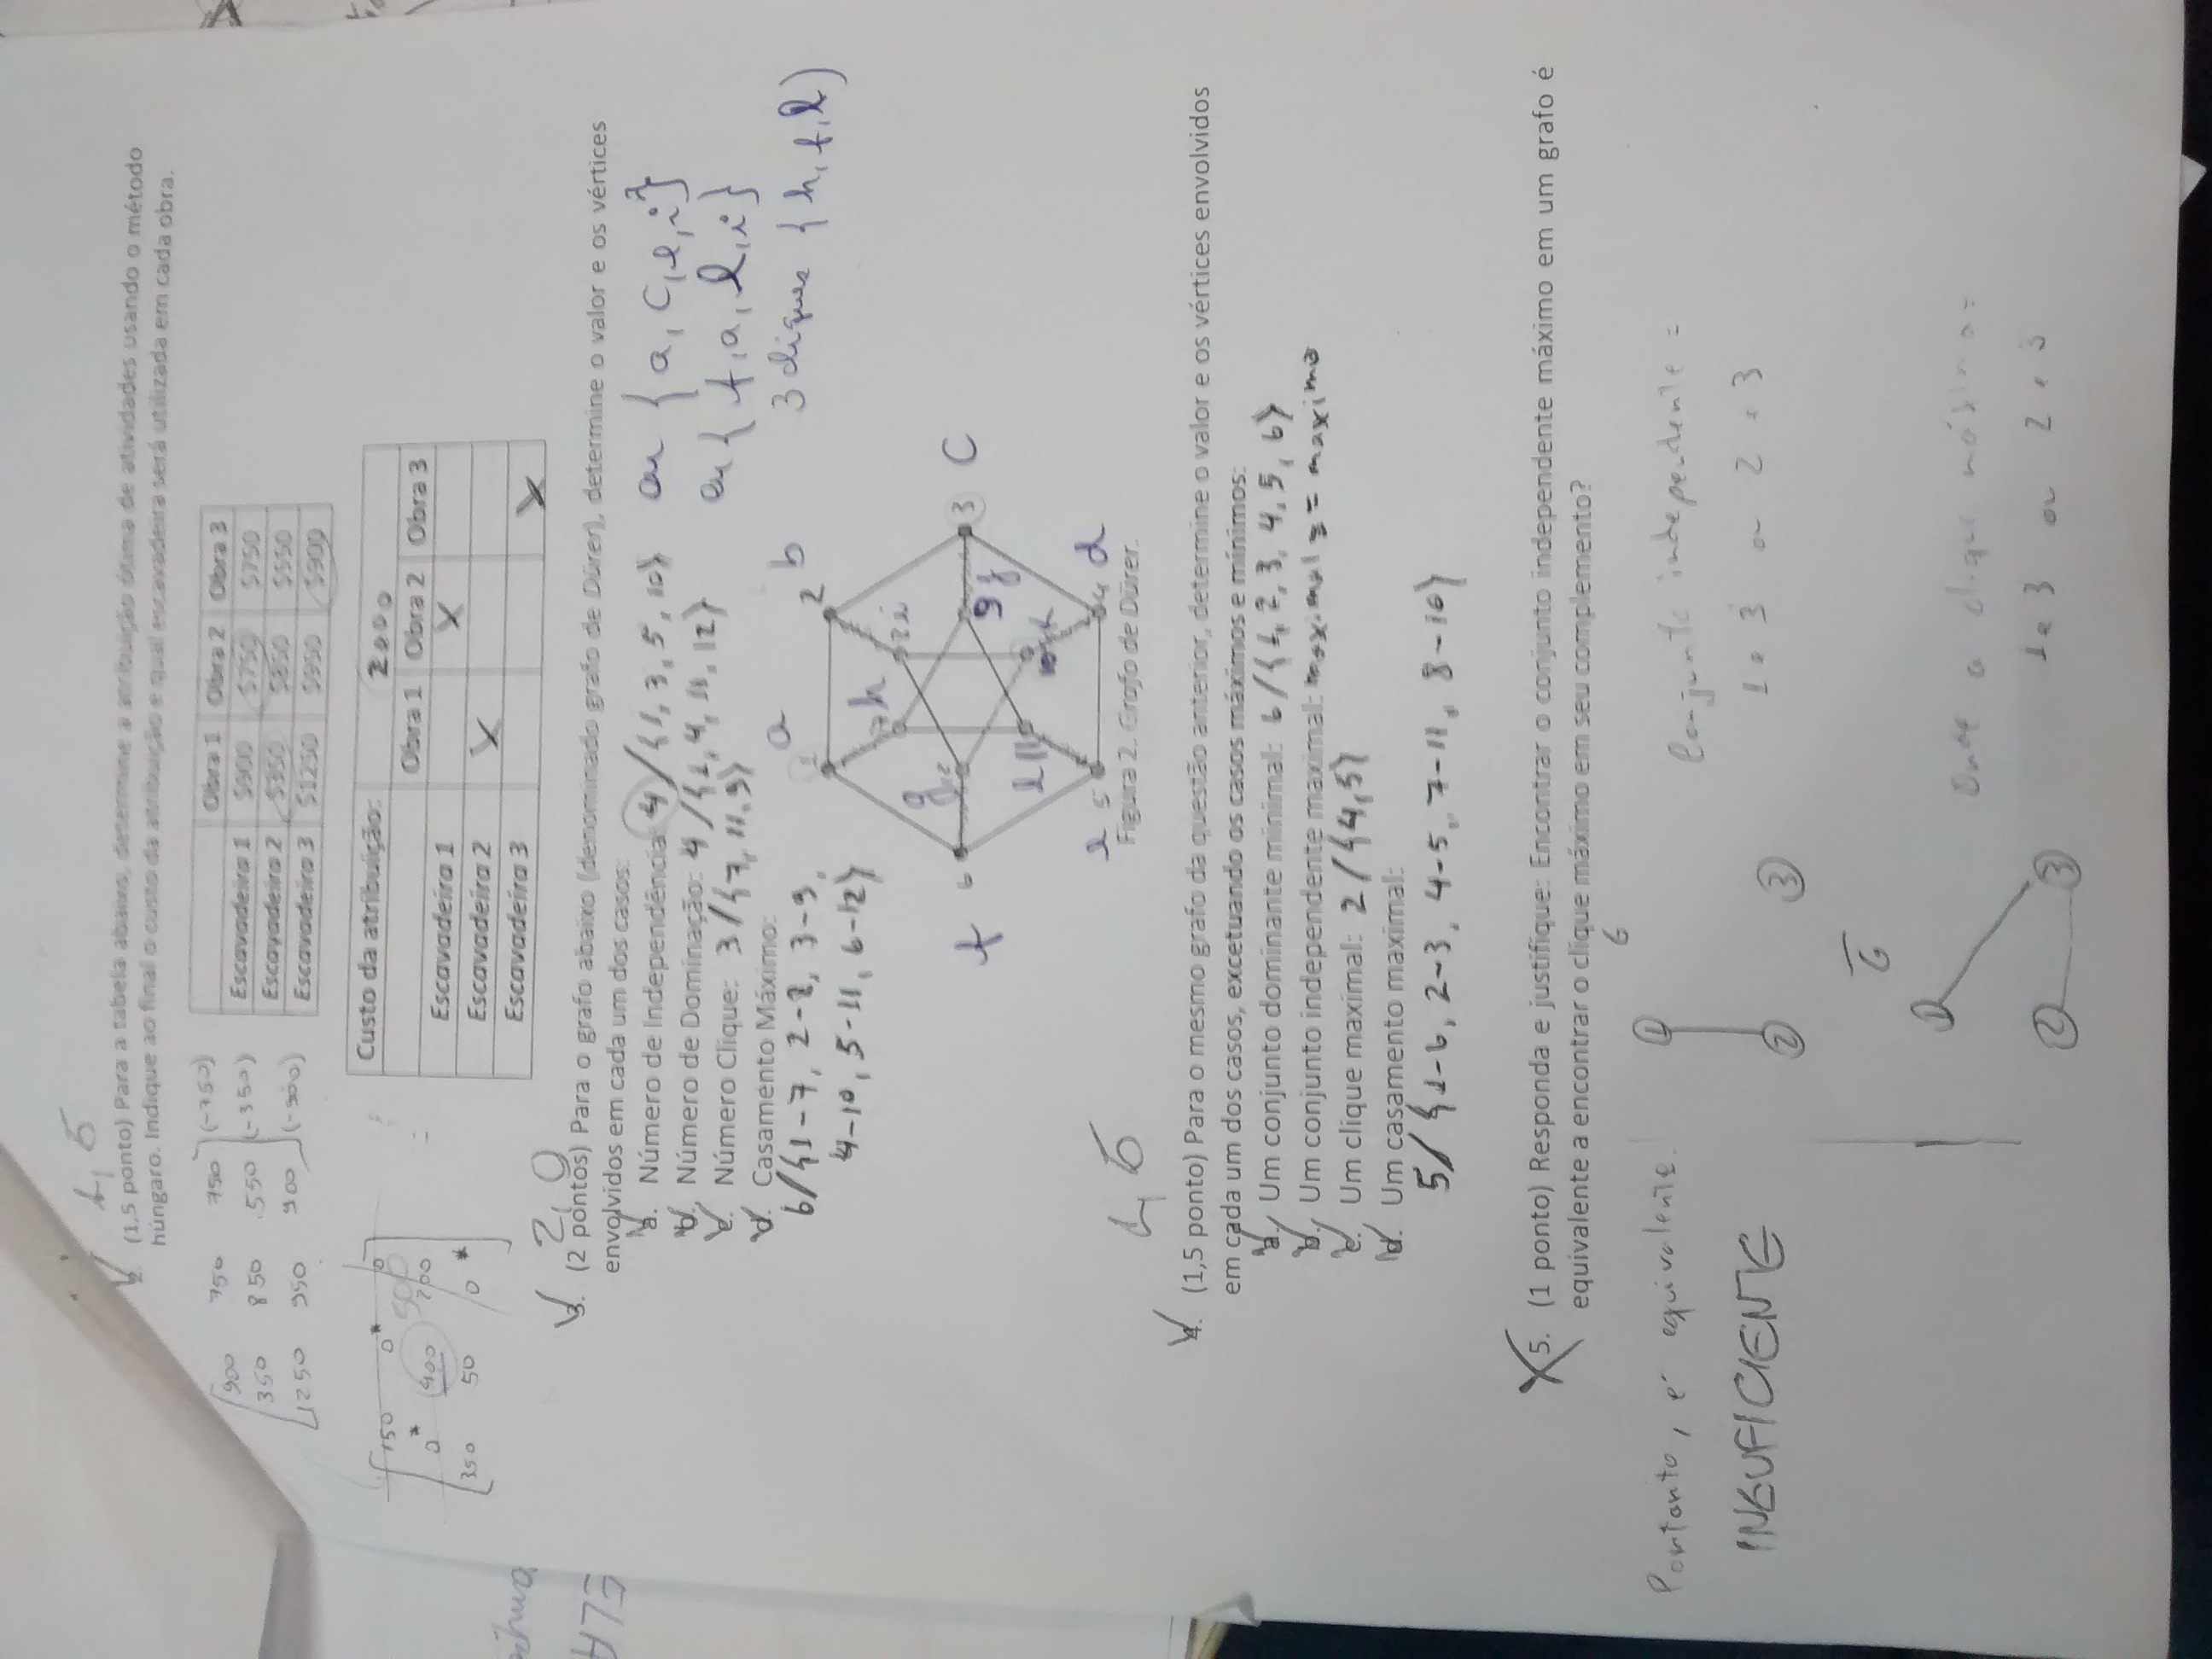 1,5
2. (1,5 ponto) Para a tabela abaixo, determine a atribuição ótima de atividades usando o método
húngaro. Indique ao final o custo da atribuição e qual escavadeira será utilizada em cada obra.
900 750 750 (-750)
350 850 550 (-350)
1250 950 900 (-900)
Obra 1 Obra 2 Obra 3
Escavadeira 1 $900 $750 $750
Escavadeira 2 $350 $850 $550
Escavadeira 3 $1250 $950 $900
150 0* 0
0* 400 200
500
350 50 0*
Custo da atribuição: 2000
Obra 1 Obra 2 Obra 3
Escavadeira 1 X
Escavadeira 2 X
Escavadeira 3 X
ELA
2,0
3. (2 pontos) Para o grafo abaixo (denominado grafo de Dürer), determine o valor e os vértices
envolvidos em cada um dos casos:
a. Número de Independência: 4/{1, 3, 5, 10} ou {a, c, e, i}
b. Número de Dominação: 4/{1, 4, 11, 12} ou {f, a, l, i}
c. Número Clique: 3/{7, 11, 9}
d. Casamento Máximo: 3 cliques {h, f, l)
6/{1-7, 2-8, 3-9,
4-10, 5-11, 6-12}
a b
1 2
7 h 8 i
g 12
f 6 9 j 3 c
l 11 10 k
e 5 4 d
Figura 2. Grafo de Dürer.
1,5
4. (1,5 ponto) Para o mesmo grafo da questão anterior, determine o valor e os vértices envolvidos
em cada um dos casos, excetuando os casos máximos e mínimos:
a. Um conjunto dominante minimal: 6/{1, 2, 3, 4, 5, 6}
b. Um conjunto independente maximal: maximal = maximo
c. Um clique maximal: 2/{4,5}
d. Um casamento maximal:
5/{1-6, 2-3, 4-5, 7-11, 8-10}
X 5. (1 ponto) Responda e justifique: Encontrar o conjunto independente máximo em um grafo é
equivalente a encontrar o clique máximo em seu complemento?
G
Portanto, é equivalente.
1
Conjunto independente =
INSUFICIENTE
2 3
1 e 3 ou 2 e 3
G
1
Onde a clique máxima =
2 3
1 e 3 ou 2 e 3